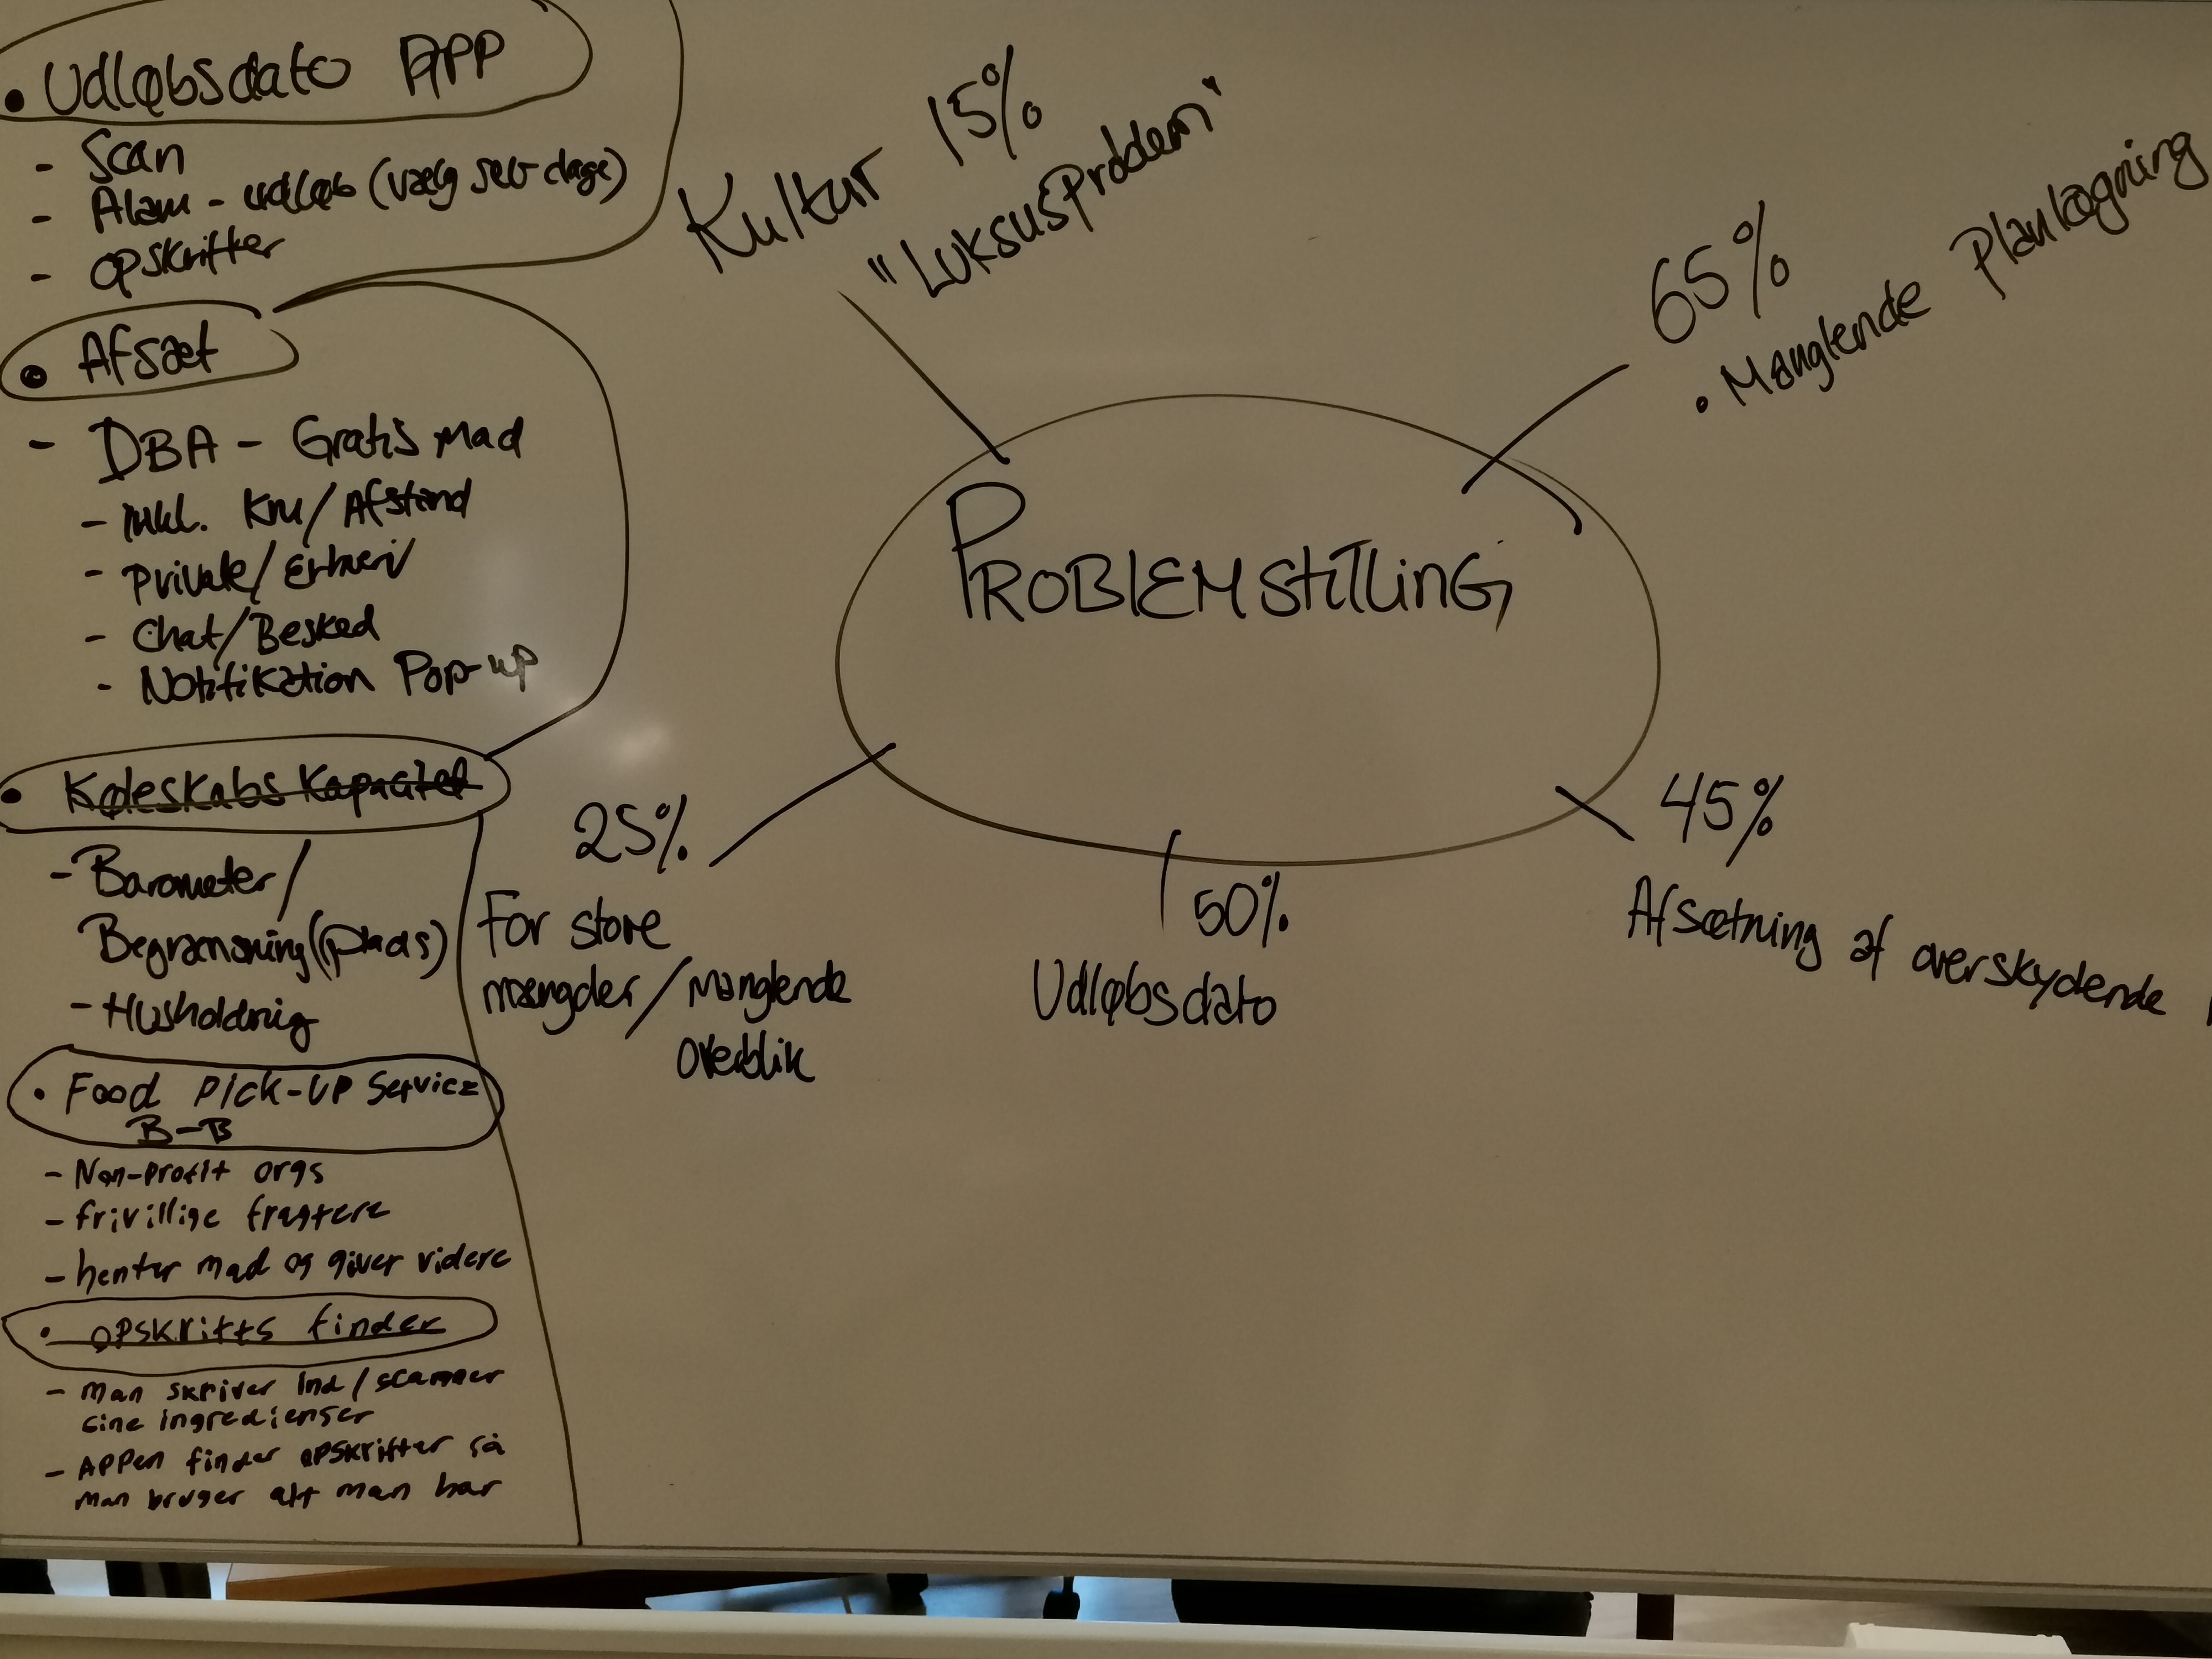 • Udløbsdato APP
- Scan
- Alam - udløb (vælg selv dage)
- opskrifter
• Afsæt
- DBA - Gratis mad
- inkl. Km/Afstand
- private/Erhverv
- Chat/Besked
- Notifikation Pop-up
• Køleskabs Kapacitet
- Barometer/
Begrænsning (plads)
- Husholdnig
• Food Pick-UP Service
B-B
- Non-profit orgs
- frivillige fragtere
- henter mad og giver videre
• opskrifts finder
- man skriver ind/scanner
sine ingredienser
- APPen finder opskrifter så
man bruger alt man har
Kultur 15%
"Luksusproblem"
65%
• Manglende Planlægning
PROBLEMSTILLING
25%
For store
mængder/Manglende
overblik
50%
Udløbsdato
45%
Afsætning af overskydende